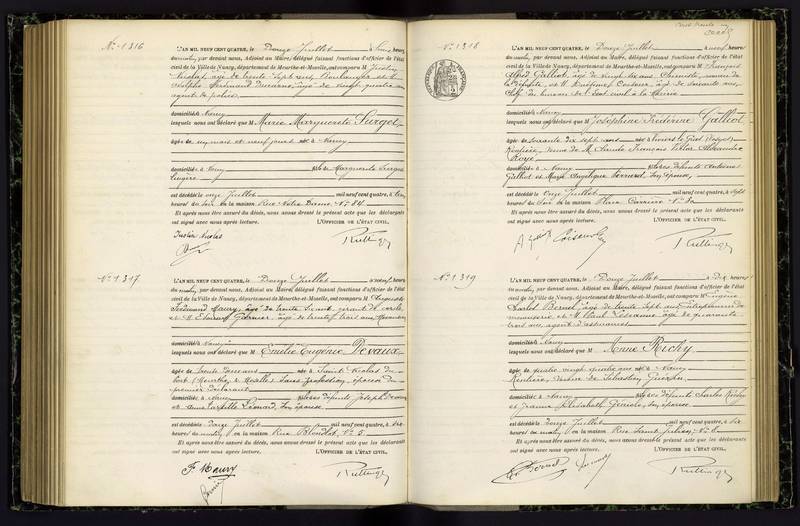 N° 1316
L'AN MIL NEUF CENT QUATRE, le Douze Juillet à
du matin, par devant nous, Adjoint au Maire, délégué faisant fonctions d'officier de l'état
civil de la Ville de Nancy, département de Meurthe-et-Moselle, ont comparu M Justin
Nicolas, âgé de trente sept ans, Boulanger et M
Adolphe Ferdinand âgé de vingt quatre ans
agent de police,
domiciliés à Nancy
lesquels nous ont déclaré que M Marie Marguerite
âgée de un mois et neuf jours née à Nancy
domiciliée à Nancy fille de Marguerite
Lingère
est décédée onze Juillet mil neuf cent quatre, à
heures du soir en la maison Rue Notre Dame N° 84.
Et après nous être assuré du décès, nous avons dressé le présent acte que les déclarants
ont signé avec nous après lecture. L'OFFICIER DE L'ÉTAT CIVIL,
Justin Nicolas
N° 1317
L'AN MIL NEUF CENT QUATRE, le Douze Juillet à neuf heures
du matin, par devant nous, Adjoint au Maire, délégué faisant fonctions d'officier de l'état
civil de la Ville de Nancy, département de Meurthe-et-Moselle, ont comparu M Auguste
Ferdinand Maury, âgé de trente
et M Garnier, âgé de trente trois ans
domiciliés à Nancy
lesquels nous ont déclaré que M Emélie Eugénie Devaux
âgée de trente ans née à Saint Nicolas du
Port (Meurthe & Moselle) Sans profession, épouse du
premier déclarant
domiciliée à Nancy fille des défunts Joseph Devaux
et Anne Léonard, son épouse
est décédée douze Juillet mil neuf cent quatre, à six
heures du matin en la maison Rue Blondlot, N° 5.
Et après nous être assuré du décès, nous avons dressé le présent acte que les déclarants
ont signé avec nous après lecture. L'OFFICIER DE L'ÉTAT CIVIL,
F. Maury
N° 1318
L'AN MIL NEUF CENT QUATRE, le Douze Juillet à neuf heures
du matin, par devant nous, Adjoint au Maire, délégué faisant fonctions d'officier de l'état
civil de la Ville de Nancy, département de Meurthe-et-Moselle, ont comparu M François
Alfred Galliot, âgé de vingt six ans, Chimiste, neveu de
la défunte, et M âgé de soixante ans,
Chef de bureau de l'Etat civil à la Mairie
domiciliés à Nancy
lesquels nous ont déclaré que M Joséphine Frédérine Galliot
âgée de soixante dix sept ans née à (Vosges)
Rentière, veuve de M. Claude François Victor Alexandre
Roye
domiciliée à Nancy fille des défunts Antoine
Galliot et Marie Angélique Ferrard, son épouse,
est décédée Onze Juillet mil neuf cent quatre, à sept
heures du Soir en la maison Place Carrière N° 32
Et après nous être assuré du décès, nous avons dressé le présent acte que les déclarants
ont signé avec nous après lecture. L'OFFICIER DE L'ÉTAT CIVIL,
N° 1319
L'AN MIL NEUF CENT QUATRE, le Douze Juillet à dix heures
du matin, par devant nous, Adjoint au Maire, délégué faisant fonctions d'officier de l'état
civil de la Ville de Nancy, département de Meurthe-et-Moselle, ont comparu M Eugène
âgé de trente sept ans Entrepreneur de
menuiserie et M Paul âgé de quarante
trois ans, agent d'assurances
domiciliés à Nancy
lesquels nous ont déclaré que M Anne Richy
âgée de quatre vingt quatre ans née à Nancy
Rentière, veuve de Sébastien
domiciliée à Nancy fille des défunts Charles Richy
et Jeanne Elisabeth son épouse
est décédée douze Juillet mil neuf cent quatre, à six
heures du matin en la maison Rue Saint Julien, N° 8.
Et après nous être assuré du décès, nous avons dressé le présent acte que les déclarants
ont signé avec nous après lecture. L'OFFICIER DE L'ÉTAT CIVIL,